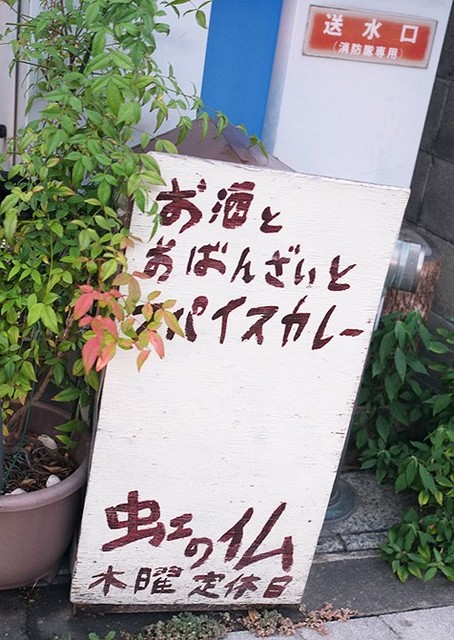 送水口
(消防隊専用)
お酒と
おばんざいと
スパイスカレー
虹の仏
木曜定休日